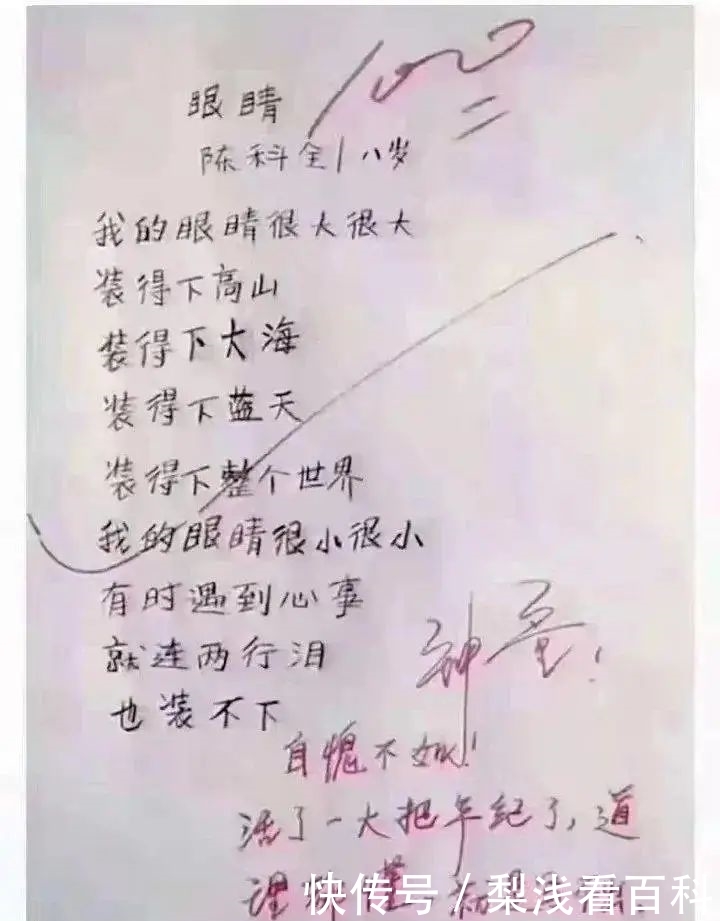 眼睛
100
陈科全/八岁
我的眼睛很大很大
装得下高山
装得下大海
装得下蓝天
装得下整个世界
我的眼睛很小很小
有时遇到心事
就连两行泪
也装不下
神童!
自愧不如!
活了一大把年纪了,道
理都懂
快传号/梨浅看百科